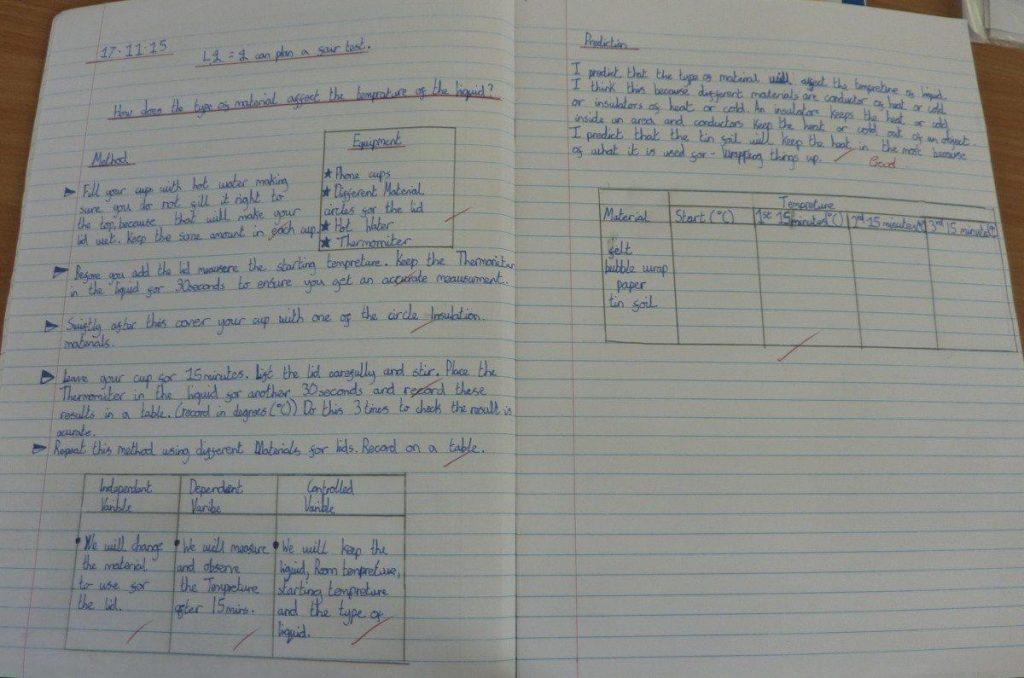 17.11.15
L.I = I can plan a fair test.
How does the type of material affect the temprature of the liquid?
Equipment
★ Phone cups
★ Different Material
circles for the lid
★ Hot Water
★ Thermomiter
Method
Fill your cup with hot water making
sure you do not fill it right to
the top, because that will make your
lid wet. Keep the same amount in each cup.
Before you add the lid meausere the starting tempreture. Keep the Thermomiter
in the liquid for 30seconds to ensure you get an accurate meausurment.
Swiftly after this cover your cup with one of the circle Insulation
materials.
Leave your cup for 15 minutes. Lift the lid carefully and stir. Place the
Thermomiter in the liquid for another 30 seconds and record these
results in a table. (record in degrees (°C)) Do this 3 times to check the result is
acurate.
Repeat this method using different Materials for lids. Record on a table.
Independant Varible
Dependent Varibe
Controlled Varible
• We will change
the material
to use for
the lid.
• We will measure
and observe
the Tempreture
after 15 mins.
• We will keep the
liquid, Room tempreture,
starting tempreture
and the type of
liquid.
Prediction
I predict that the type of material will affect the tempreture of liquid.
I think this because different materials are conductor of heat or cold
or insulators of heat or cold. An insulator keeps the heat or cold
inside an area and conductors keep the heat or cold out of an object.
I predict that the tin foil will keep the heat in the most because
of what it is used for - wrapping things up.
Good
Tempreture
Material Start (°C) 1st 15 minutes (°C) 2nd 15 minutes (°C) 3rd 15 minutes (°C)
felt
bubble wrap
paper
tin foil